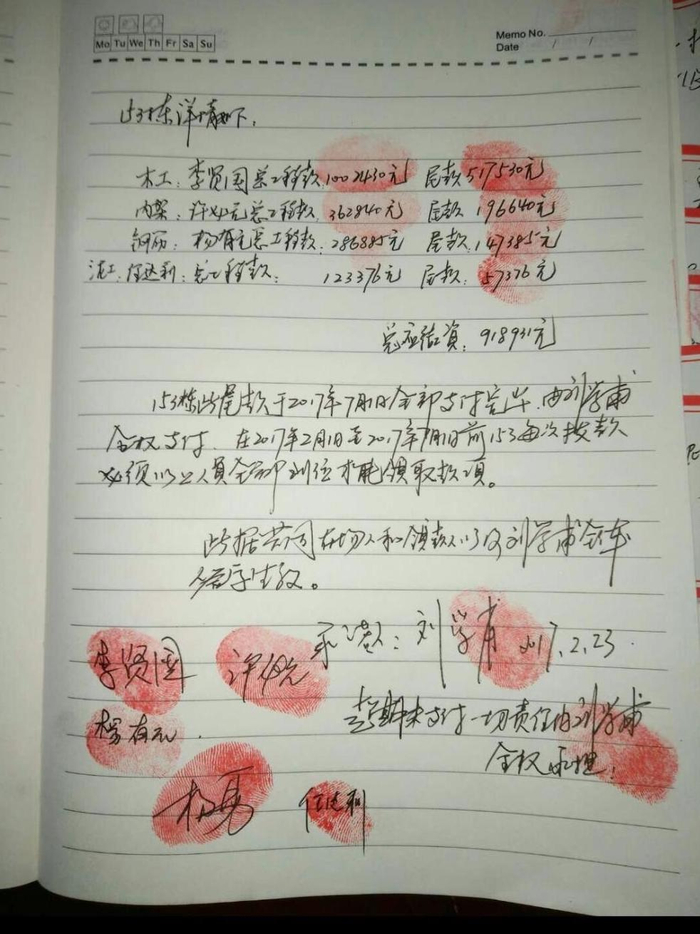 Mo Tu We Th Fr Sa Su
Memo No.
Date / /
153栋详情如下.
木工:李贤国总工程款.1002430元 尾款517530元
内架:许 元总工程款.362840元 尾款196640元
钢筋:杨有元总工程款.286885元 尾款:147385元
泥工.任达利:总工程款: 123376元 尾款:57376元
总应结资:918931元
153栋此尾款于2017年7月1日全部支付完毕.由刘学甫
全权支付.在2017年2月1日至2017年7月1日前153每次拨款
必须以上人员全部到位才能领取款项。
此据共同在场人和领款人以及刘学甫全体
签字生效。
李贤国 许 元 承诺人:刘学甫 2017.2.23.
杨有元. 超期未支付一切责任由刘学甫
全权承担.
杨勇 任达利